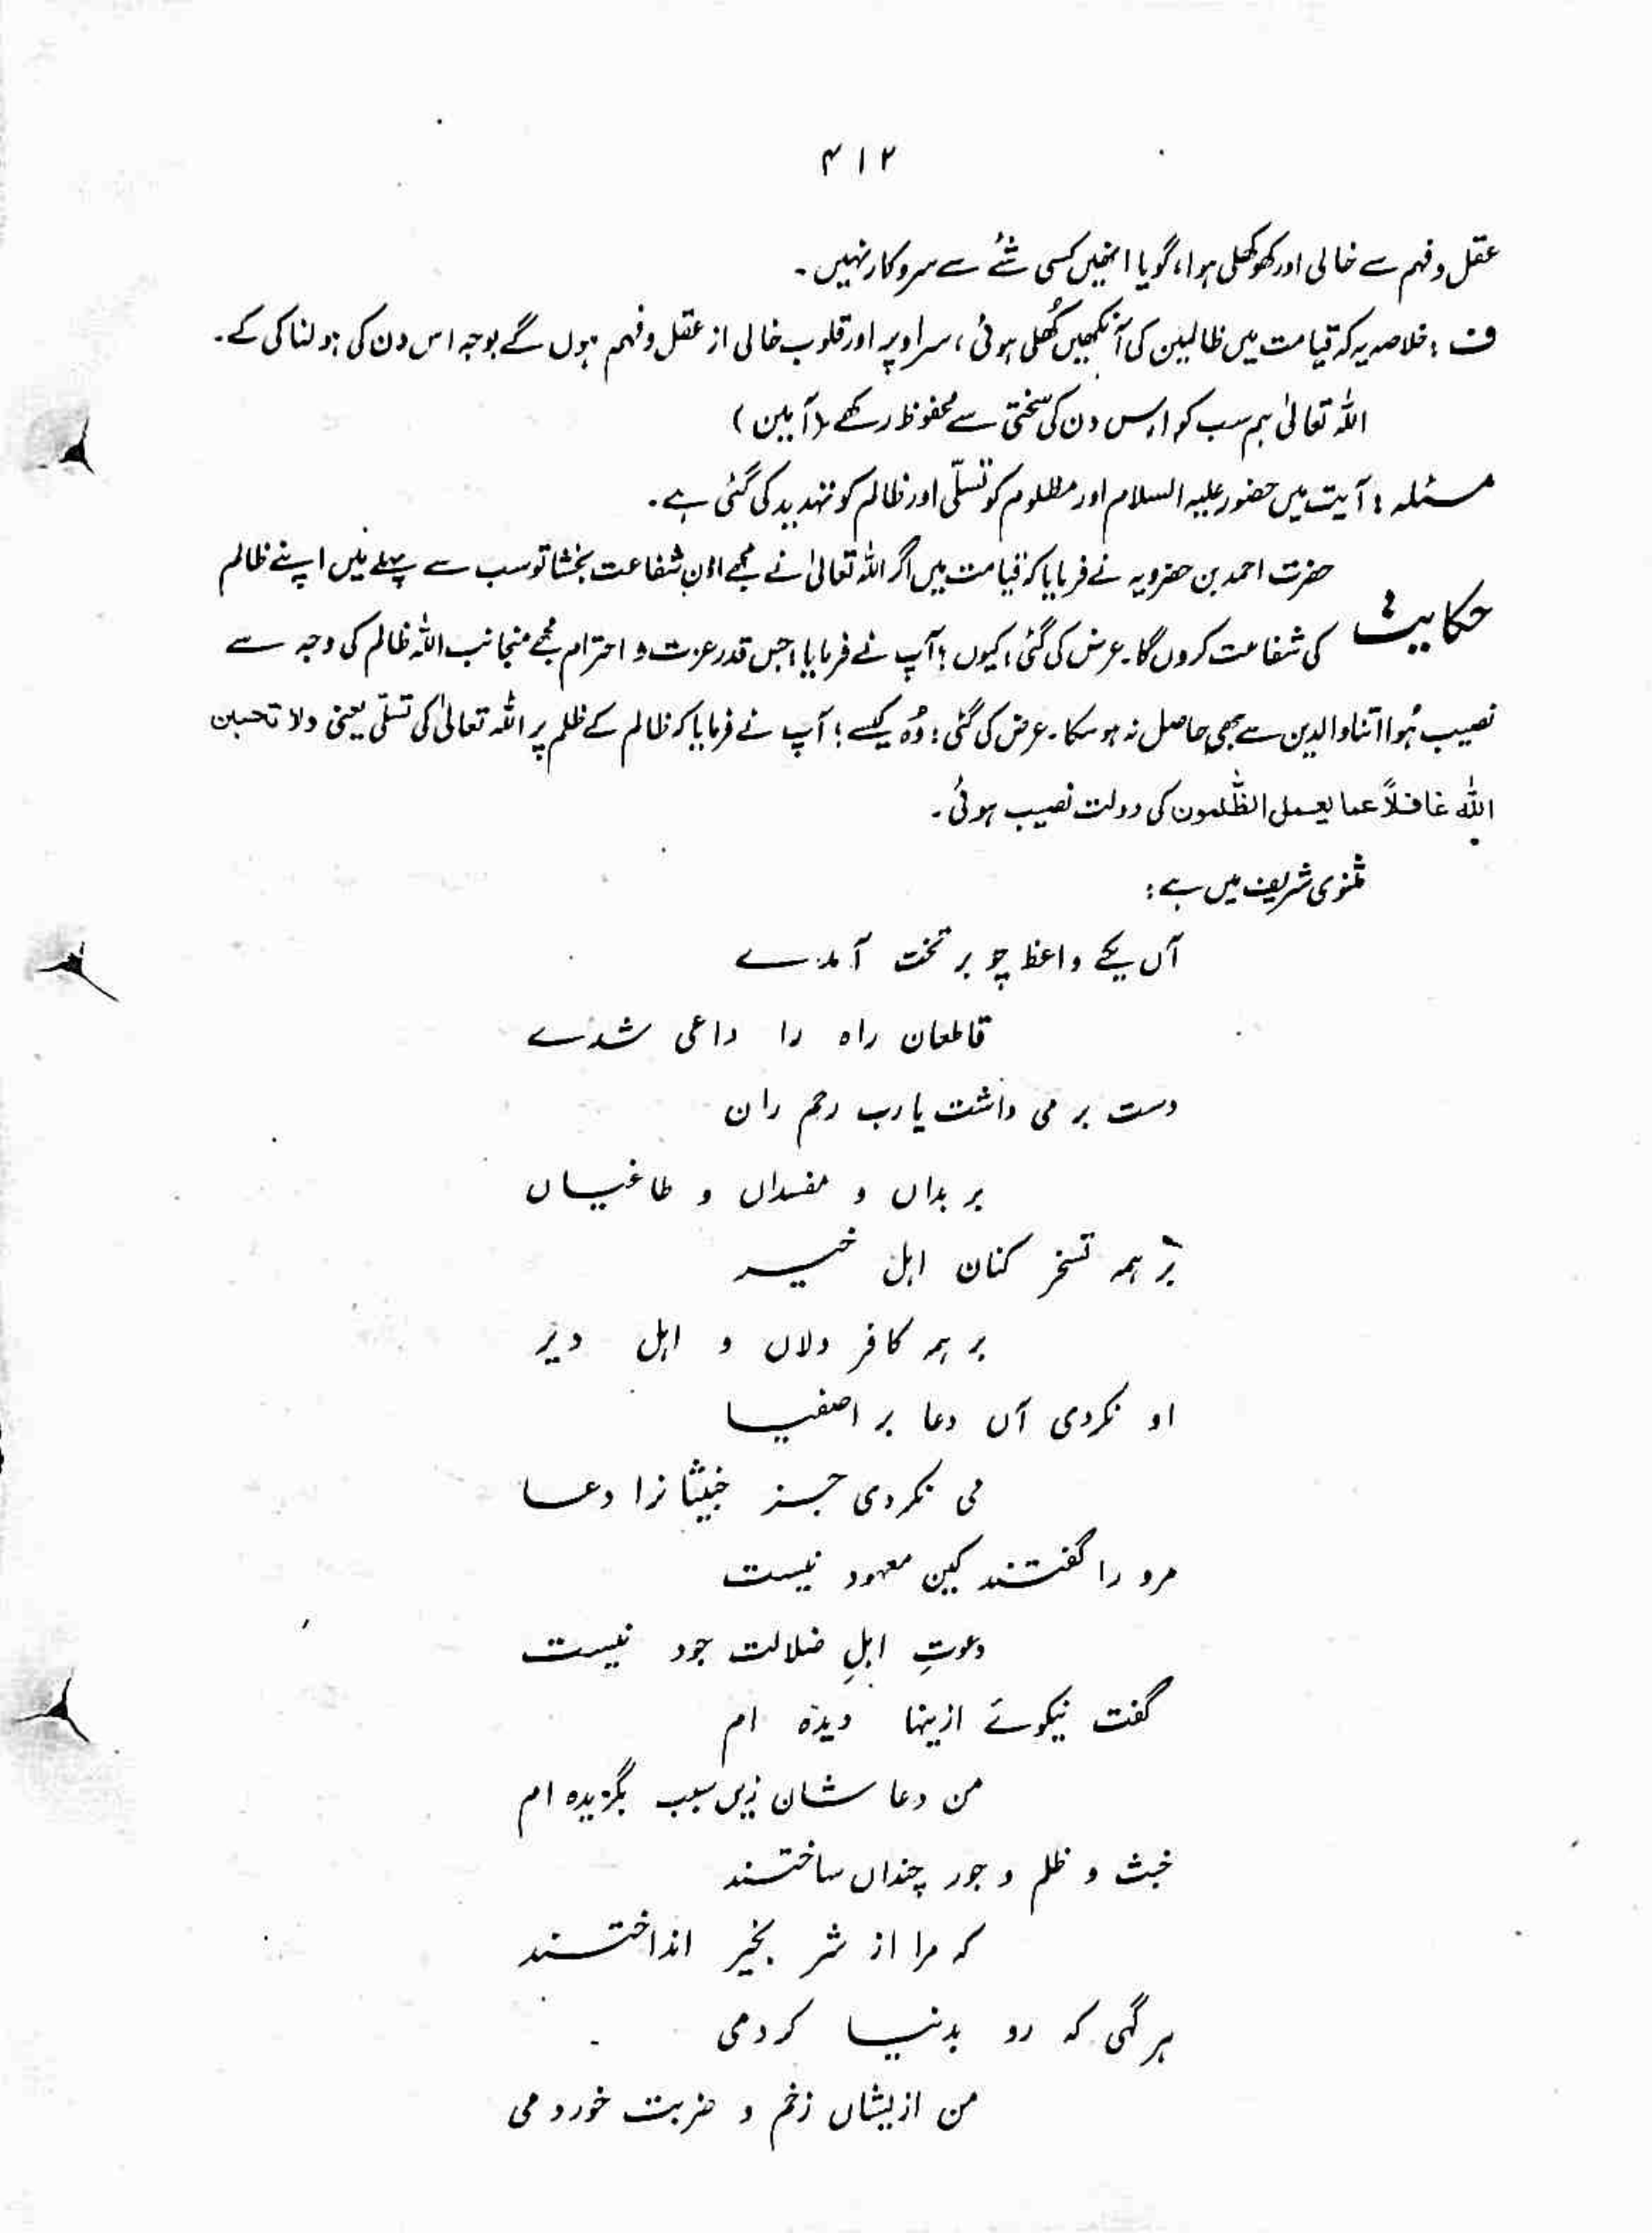 ۴۱۲
عقل و فہم سے خالی اور کھوکھلی ہوا، گویا انھیں کسی شئے سے سروکار نہیں۔
ف : خلاصہ یہ کہ قیامت میں ظالمین کی آنکھیں کُھلی ہوئی ، سر اوپر اور قلوب خالی از عقل و فہم ہوں گے بوجہ اس دن کی ہولناکی کے۔
اللہ تعالیٰ ہم سب کو اس دن کی سختی سے محفوظ رکھے (آمین)
مسئلہ : آیت میں حضور علیہ السلام اور مظلوم کو تسلّی اور ظالم کو تہدید کی گئی ہے۔
حضرت احمد بن حضرویہ نے فرمایا کہ قیامت میں اگر اللہ تعالیٰ نے مجھے اذنِ شفاعت بخشا تو سب سے پہلے میں اپنے ظالم
حکایت کی شفاعت کروں گا۔ عرض کی گئی، کیوں؟ آپ نے فرمایا، جس قدر عزت و احترام مجھے منجانب اللہ ظالم کی وجہ سے
نصیب ہُوا اتنا والدین سے بھی حاصل نہ ہو سکا۔ عرض کی گئی : وُہ کیسے؟ آپ نے فرمایا کہ ظالم کے ظلم پر اللہ تعالیٰ کی تسلّی یعنی ولا تحسبن
اللہ غافلاً عما یعمل الظّٰلمون کی دولت نصیب ہوئی۔
مثنوی شریف میں ہے :
آں یکے واعظ چو بر تخت آمدے
قاطعان راہ را داعی شدے
دست بر می داشت یا رب رحم ران
بر بداں و مفسداں و طاغیاں
بر ہمہ تسخر کنان اہل خیر
بر ہمہ کافر دلاں و اہل دیر
او نکردی آں دعا بر اصفیا
می نکردی جز خبیثانرا دعا
مرو را گفتند کین معہود نیست
دعوتِ اہلِ ضلالت جود نیست
گفت نیکوئے ازینہا دیدہ ام
من دعا شان زیں سبب بگزیدہ ام
خبث و ظلم و جور چنداں ساختند
کہ مرا از شر بخیر انداختند
ہر گہی کہ رو بدنیا کردمی
من ازیشاں زخم و ضربت خوردمی